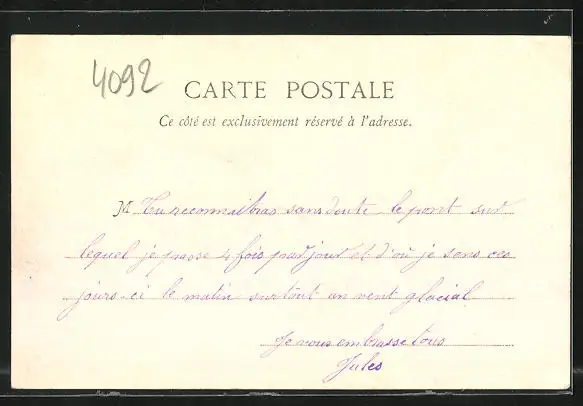 4092
CARTE POSTALE
Ce côté est exclusivement réservé à l'adresse.
M Tu reconnaitras sans doute le pont sur
lequel je passe 4 fois par jour et d'où je sens ces
jours-ci le matin surtout un vent glacial
Je vous embrasse tous
Jules